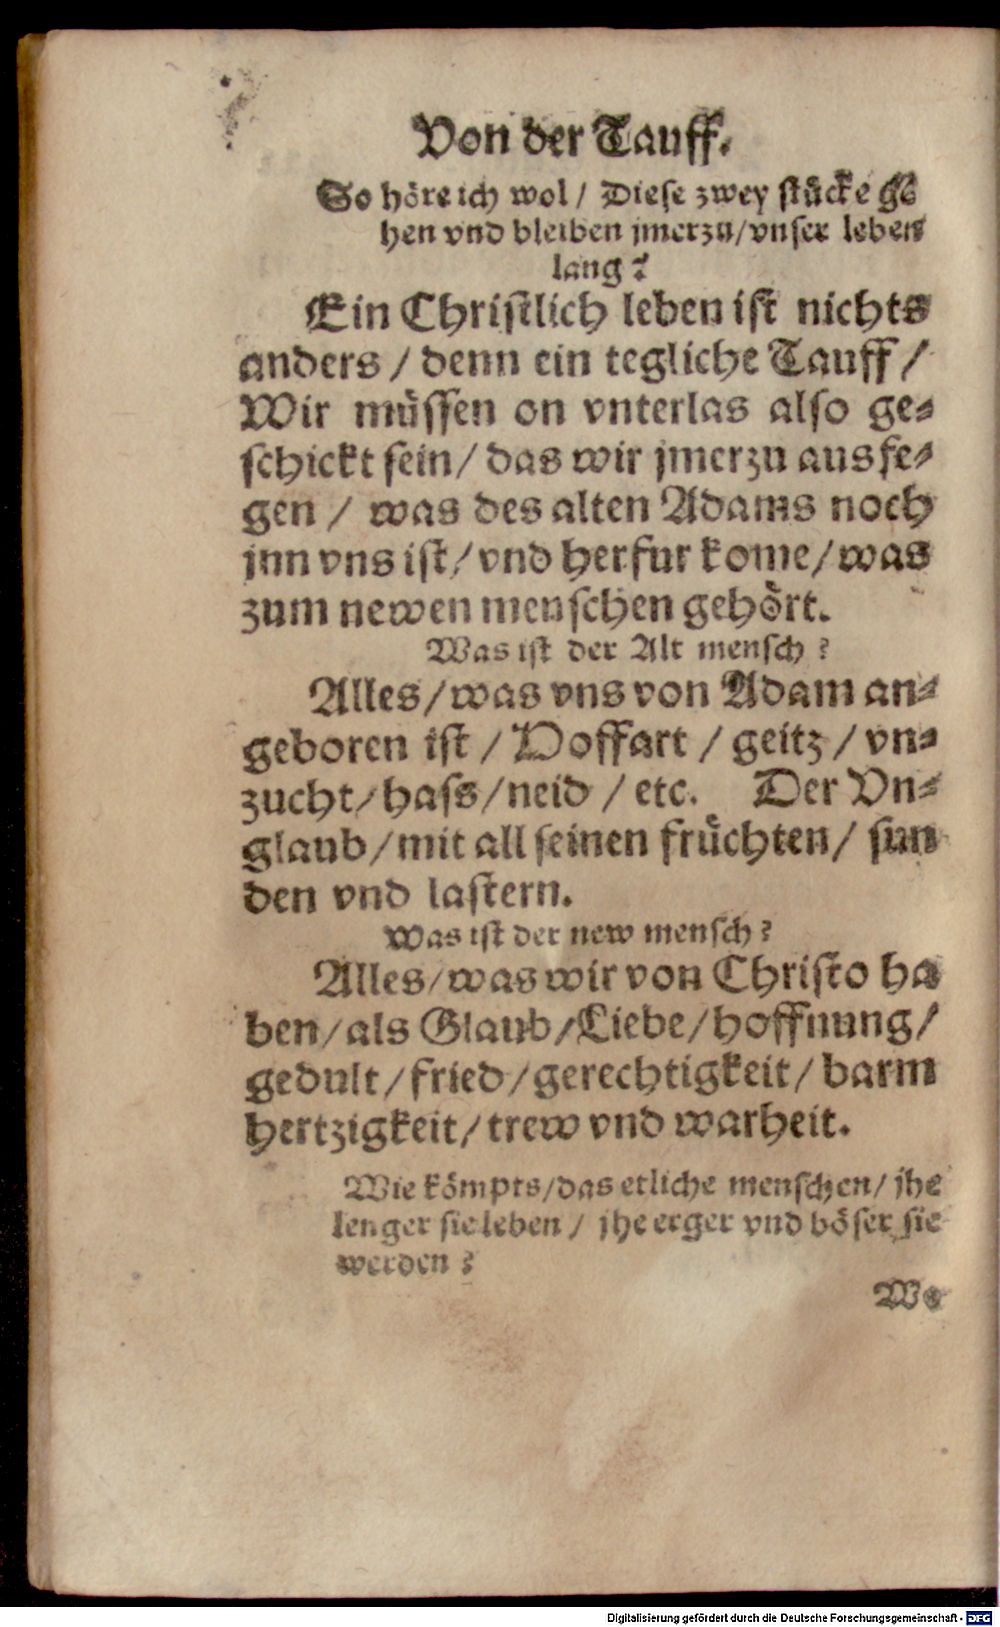 Von der Tauff.
So höre ich wol / Diese zwey stücke ge
hen vnd bleiben jmerzu/vnser leben
lang?
Ein Christlich leben ist nichts
anders / denn ein tegliche Tauff /
Wir müssen on vnterlas also ge-
schickt sein/ das wir jmerzu ausfe-
gen / was des alten Adams noch
jnn vns ist/ vnd herfur kome/ was
zum newen menschen gehört.
Was ist der Alt mensch?
Alles/was vns von Adam an-
geboren ist / Hoffart / geitz / vn-
zucht/ hass/neid / etc. Der Vn-
glaub/mit all seinen früchten/ sun
den vnd lastern.
Was ist der new mensch?
Alles/was wir von Christo ha
ben/als Glaub/Liebe/hoffnung/
gedult/fried/gerechtigkeit/ barm
hertzigkeit/trew vnd warheit.
Wie kömpts/das etliche menschen/ jhe
lenger sie leben / jhe erger vnd böser sie
werden?
Wo
Digitalisierung gefördert durch die Deutsche Forschungsgemeinschaft - DFG